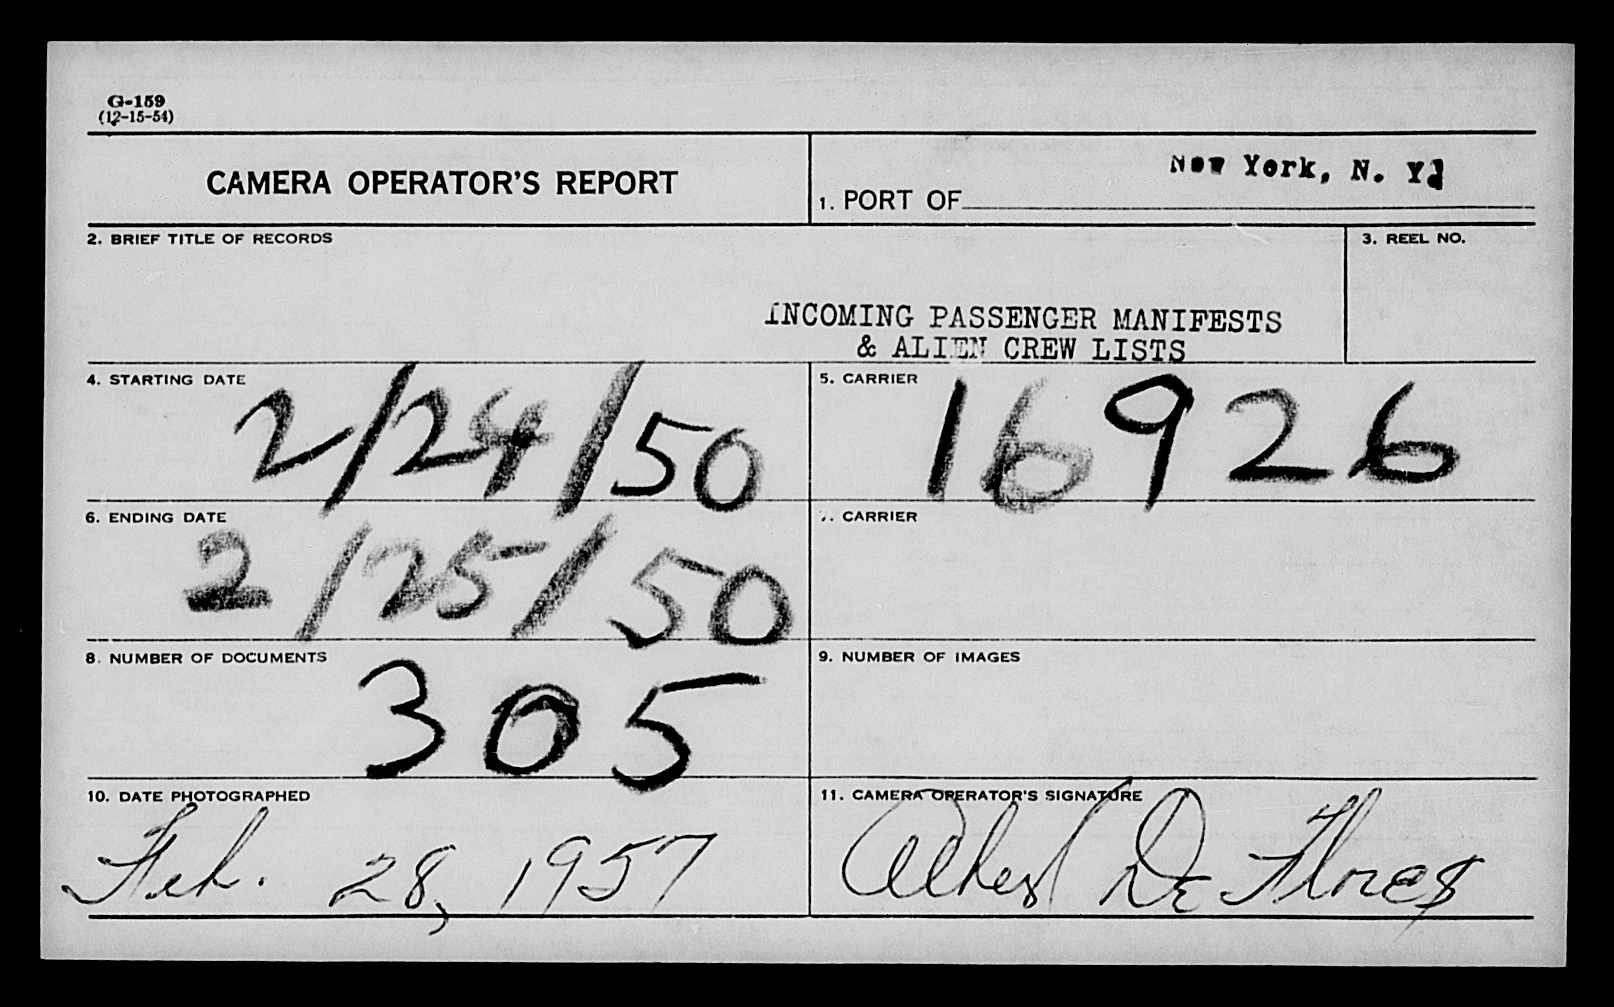 G-159
(12-15-54)
CAMERA OPERATOR'S REPORT
1. PORT OF New York, N. Y.
2. BRIEF TITLE OF RECORDS
3. REEL NO.
INCOMING PASSENGER MANIFESTS
& ALIEN CREW LISTS
4. STARTING DATE
2/24/50
5. CARRIER
16926
6. ENDING DATE
2/25/50
7. CARRIER
8. NUMBER OF DOCUMENTS
305
9. NUMBER OF IMAGES
10. DATE PHOTOGRAPHED
Feb. 28, 1957
11. CAMERA OPERATOR'S SIGNATURE
Albert De Flores